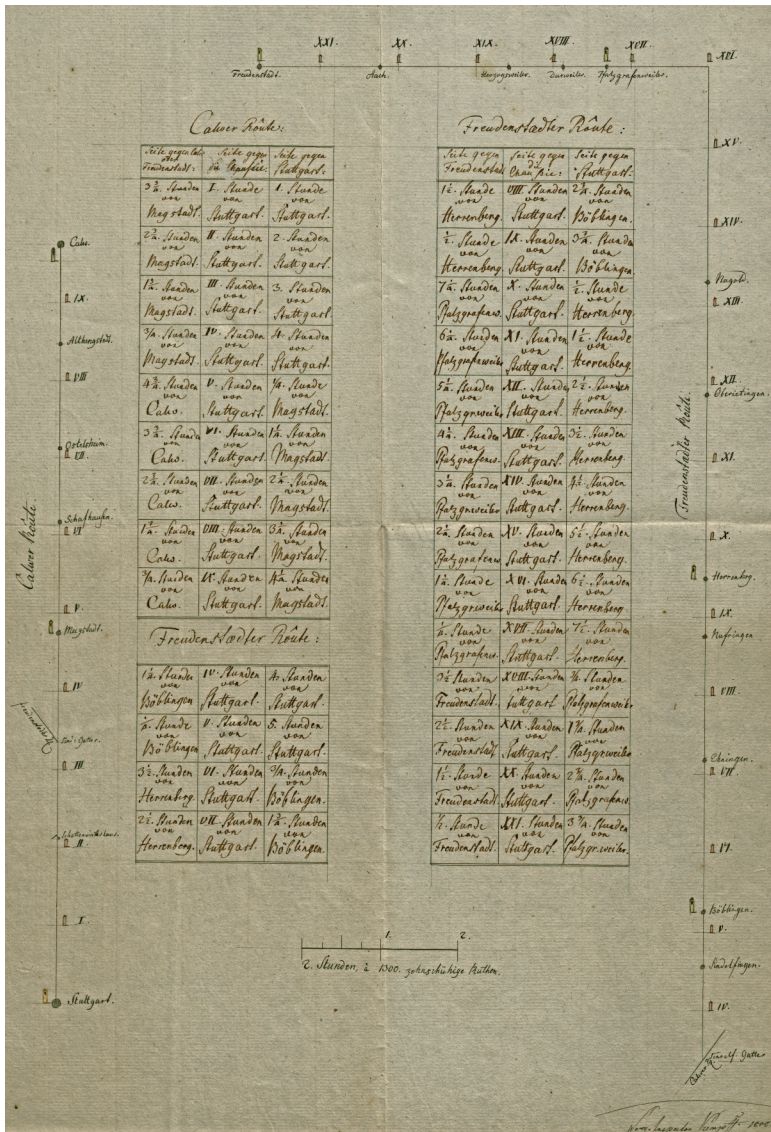 XXI.
XX.
XIX.
XVIII.
XVII.
XVI.
Freudenstadt.
Aach.
Herzogsweiler.
Durweiler.
Pfalzgrafenweiler.
Calwer Route:
Seite gegen Calw oder Freudenstadt:
Seite gegen die Chaussée:
Seite gegen Stuttgart.
3 3/4. Stunden von Magstadt.
I. Stunde von Stuttgart.
1. Stunde von Stuttgart.
2 3/4. Stunden von Magstadt.
II. Stunden von Stuttgart.
2. Stunden von Stuttgart.
1 3/4. Stunden von Magstadt.
III. Stunden von Stuttgart.
3. Stunden von Stuttgart.
3/4. Stunden von Magstadt.
IV. Stunden von Stuttgart.
4. Stunden von Stuttgart.
4 3/4. Stunden von Calw.
V. Stunden von Stuttgart.
1/4. Stunde von Magstadt.
3 3/4. Stunden von Calw.
VI. Stunden von Stuttgart.
1 1/4. Stunden von Magstadt.
2 3/4. Stunden von Calw.
VII. Stunden von Stuttgart.
2 1/4. Stunden von Magstadt.
1 3/4. Stunden von Calw.
VIII. Stunden von Stuttgart.
3 1/4. Stunden von Magstadt.
3/4. Stunden von Calw.
IX. Stunden von Stuttgart.
4 1/4. Stunden von Magstadt.
Freudenstædter Route:
1 1/4. Stunden von Böblingen
IV. Stunden von Stuttgart.
4. Stunden von Stuttgart.
1/4. Stunde von Böblingen
V. Stunden von Stuttgart.
5. Stunden von Stuttgart.
3 1/2. Stunden von Herrenberg.
VI. Stunden von Stuttgart.
3/4. Stunden von Böblingen.
2 1/2. Stunden von Herrenberg.
VII. Stunden von Stuttgart.
1 3/4. Stunden von Böblingen.
Freudenstædter Route:
Seite gegen Freudenstadt
Seite gegen die Chaussée:
Seite gegen Stuttgart.
1 1/2. Stunde von Herrenberg.
VIII. Stunden von Stuttgart.
2 3/4. Stunden von Böblingen.
1/2. Stunde von Herrenberg.
IX. Stunden von Stuttgart.
3 3/4. Stunden von Böblingen
7 1/4. Stunden von Pfalzgrafenw.
X. Stunden von Stuttgart.
1/2. Stunde von Herrenberg
6 1/4. Stunden von Pfalzgrafenweiler
XI. Stunden von Stuttgart.
1 1/2. Stunde von Herrenberg
5 1/4. Stunden von Pfalzgrweiler
XII. Stunden von Stuttgart.
2 1/2. Stunden von Herrenberg.
4 1/4. Stunden von Pfalzgrafenw.
XIII. Stunden von Stuttgart.
3 1/2. Stunden von Herrenberg.
3 1/4. Stunden von Pfalzgrweiler
XIV. Stunden von Stuttgart.
4 1/2. Stunden von Herrenberg.
2 1/4. Stunden von Pfalzgrafenw.
XV. Stunden von Stuttgart.
5 1/2. Stunden von Herrenberg.
1 1/4. Stunde von Pfalzgrweiler
XVI. Stunden von Stuttgart.
6 1/2. Stunden von Herrenberg
1/4. Stunde von Pfalzgrafenw.
XVII. Stunden von Stuttgart.
7 1/2. Stunden von Herrenberg.
3 1/2. Stunden von Freudenstadt.
XVIII. Stunden von Stuttgart
3/4. Stunden von Pfalzgrafenweiler
2 1/2. Stunden von Freudenstadt
XIX. Stunden von Stuttgart.
1 3/4. Stunden von Pfalzgrweiler
1 1/2. Stunde von Freudenstadt
XX. Stunden von Stuttgart.
2 3/4. Stunden von Pfalzgrafenw.
1/2. Stunde von Freudenstadt.
XXI. Stunden von Stuttgart.
3 3/4. Stunden von Pfalzgr.weiler.
Calw.
IX.
Althengstädt.
VIII
Ostelsheim.
VII.
Schafhausen.
VI
V.
Magstadt.
IV
III
II
I
Stuttgart.
Calwer Route
XV.
XIV.
Nagold.
XIII.
XII.
Oberietingen.
XI.
X.
Herrenberg.
IX.
Nufringen
VIII.
Ehningen.
VII.
VI.
Böblingen.
V.
Sindelfingen.
IV.
Freudenstædter Route.
1.
2.
2. Stunden, à 1300. zehnschuhige Ruthen.